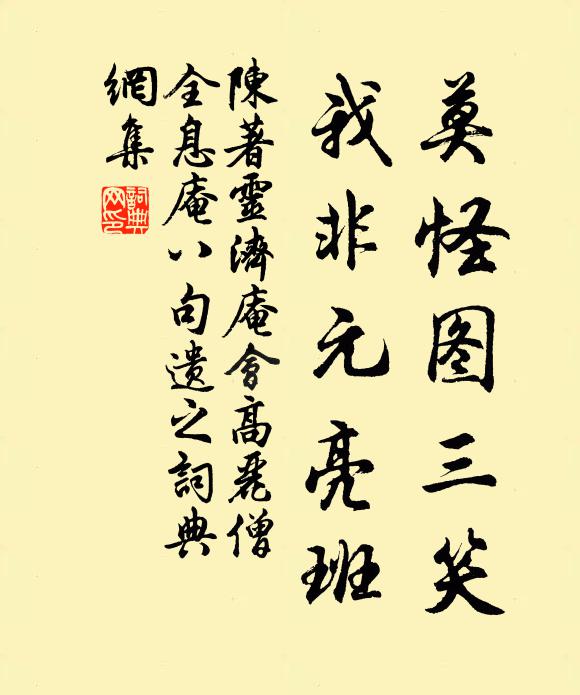 莫怪图三笑
我非元亮班
陳著靈濟庵會高麗僧
全息庵八句遺之詞典
網集
詞典网印